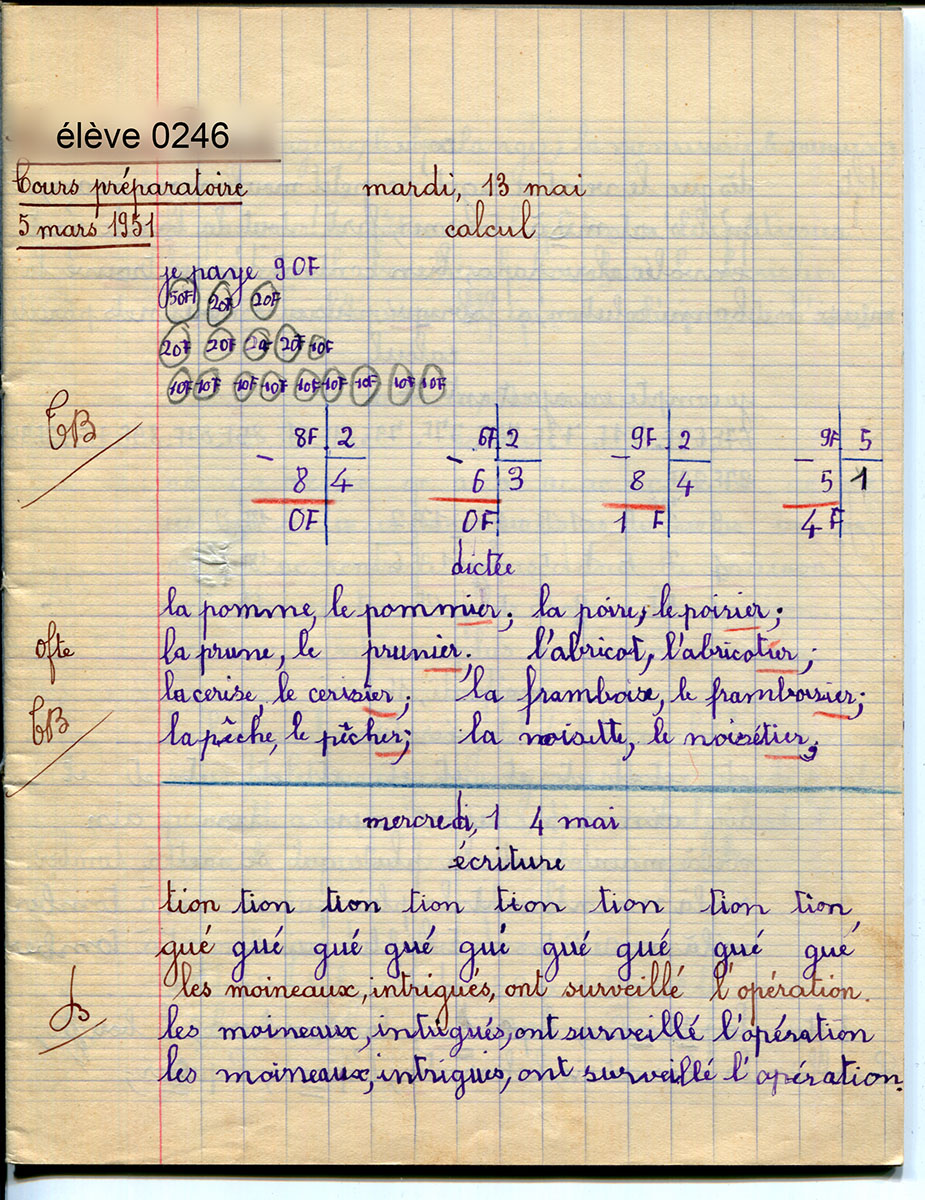 élève 0246
Cours préparatoire mardi, 13 mai
5 mars 1951 calcul
je paye 90F
50F 20F 20F
20F 20F 20F 20F 10F
10F 10F 10F 10F 10F 10F 10F 10F 10F
TB
8F 2 6F 2 9F 2 9F 5
- 8 4 - 6 3 - 8 4 - 5 1
0F 0F 1 F 4 F
dictée
la pomme, le pommier; la poire, le poirier;
ofte la prune, le prunier; l'abricot, l'abricotier;
la cerise, le cerisier; la framboise, le framboisier;
TB la pêche, le pêcher; la noisette, le noisétier;
mercredi, 1 4 mai
écriture
tion tion tion tion tion tion tion tion
gué gué gué gué gué gué gué gué gué
les moineaux, intrigués, ont surveillé l'opération.
B les moineaux, intrigués, ont surveillé l'opération
les moineaux, intrigués, ont surveillé l'opération.